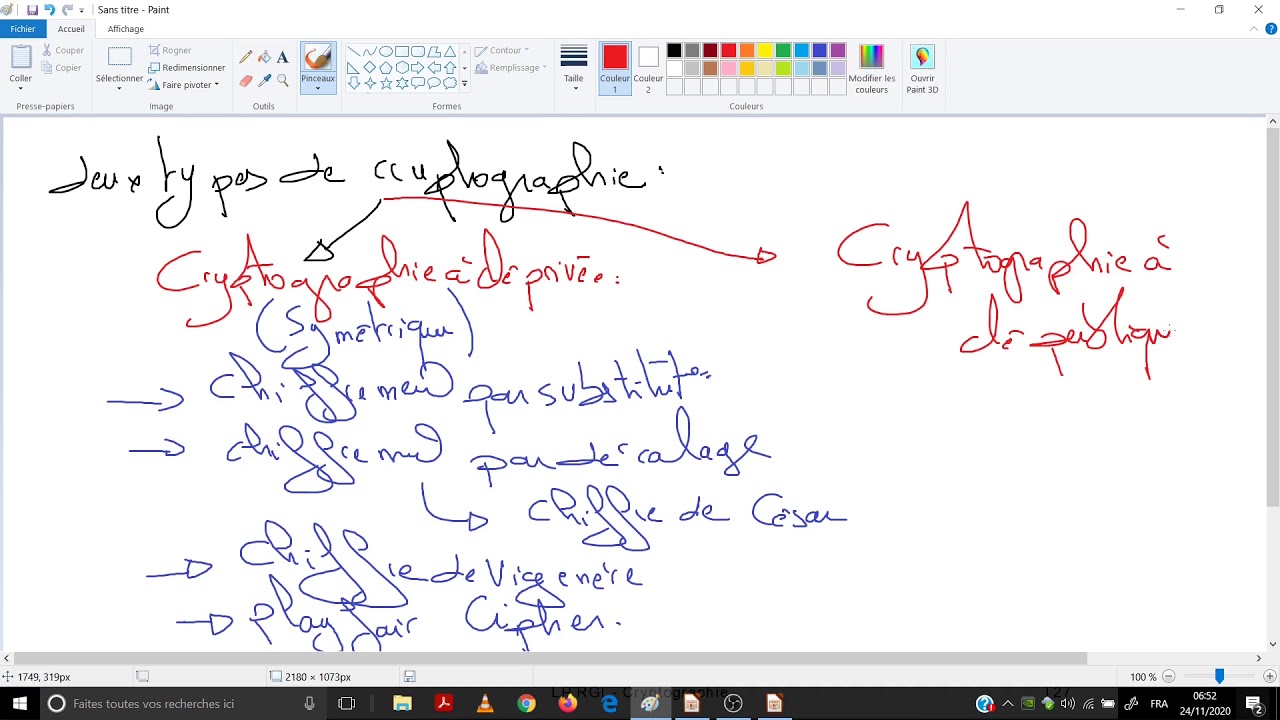 Sans titre - Paint
Fichier Accueil Affichage
Coller
Couper
Copier
Presse-papiers
Sélectionner
Rogner
Redimensionner
Faire pivoter
Image
Outils
Pinceaux
Formes
Contour
Remplissage
Taille
Couleur 1
Couleur 2
Couleurs
Modifier les couleurs
Ouvrir Paint 3D
deux types de cryptographie :
Cryptographie à clé privée :
(Symétrique)
→ Chiffrement par substitut°
→ chiffrement par décalage
→ Chiffre de César
→ Chiffre de Vigenère
→ Play fair Cipher.
Cryptographie à
clé publiqu
1749, 319px
2180 × 1073px
100 %
Faites toutes vos recherches ici
LP RGI - Cryptographie
127
FRA
06:52
24/11/2020